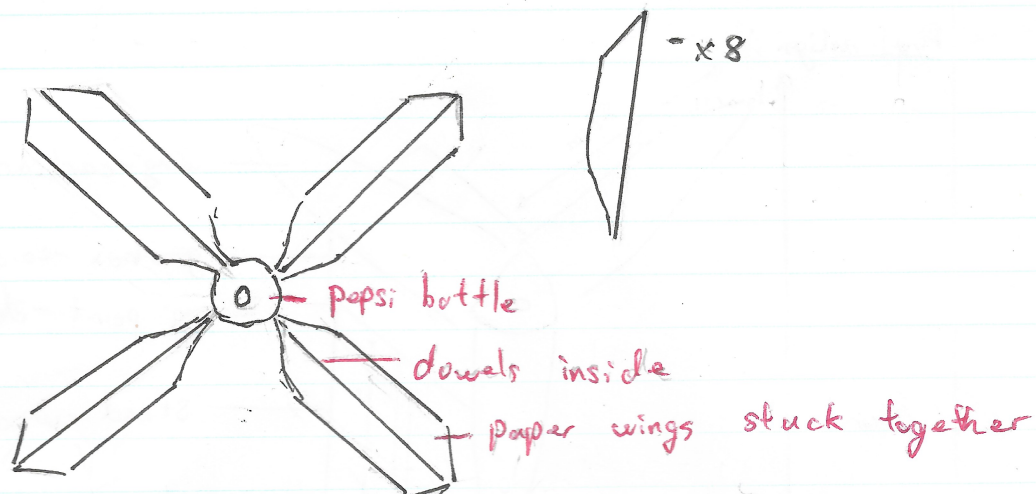 - x 8
pepsi bottle
dowels inside
paper wings stuck together